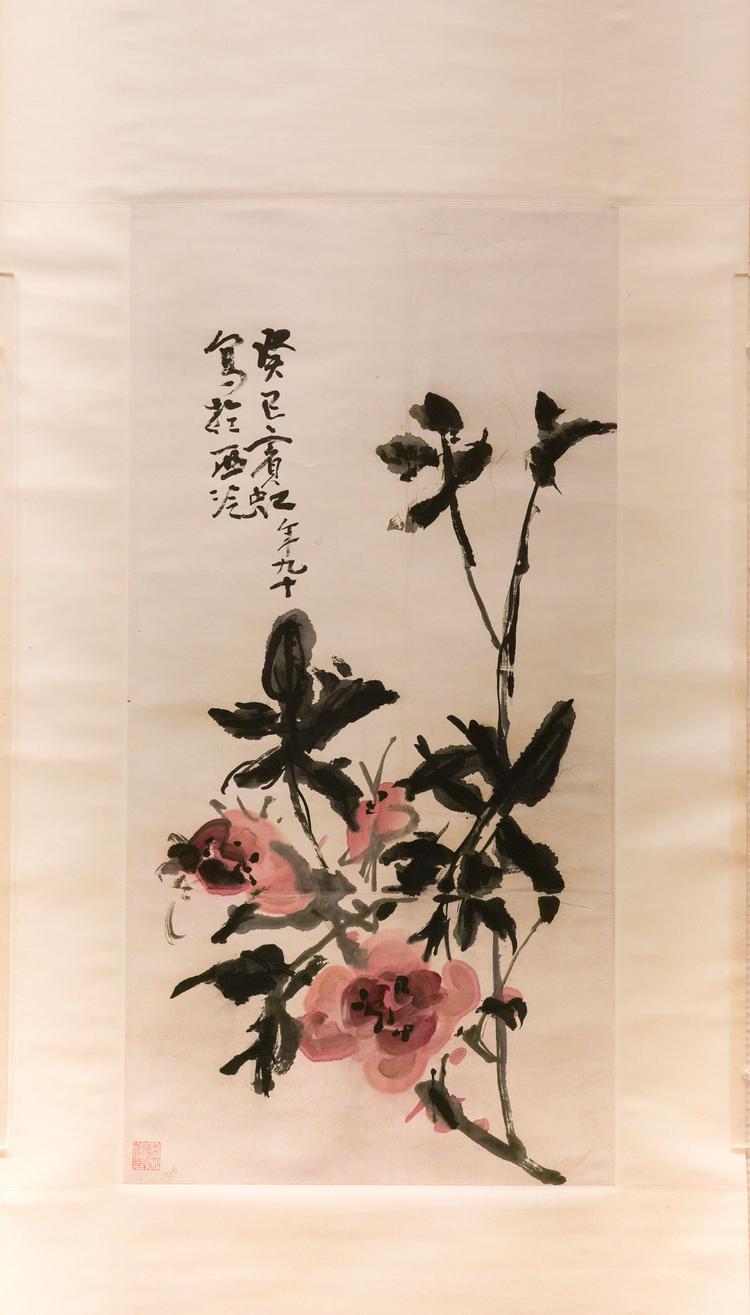 癸巳賓虹年九十
寫於西泠